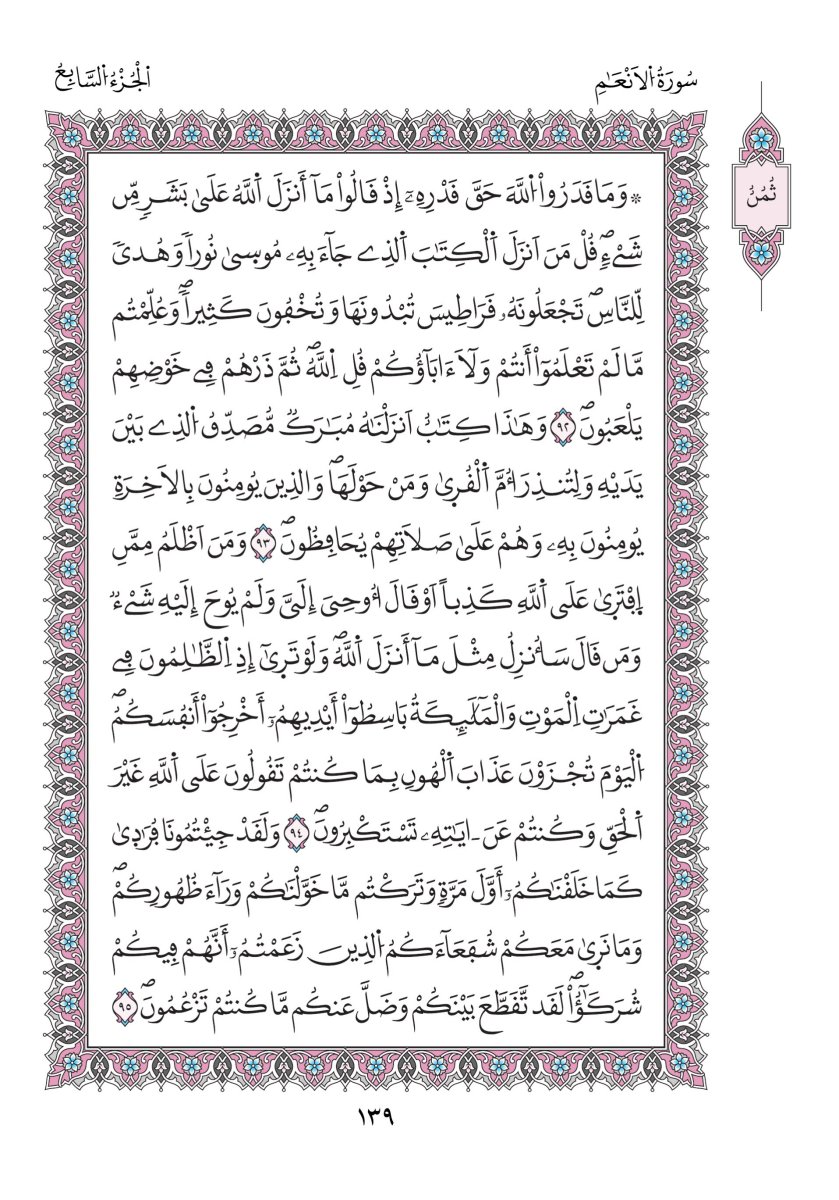 الجُزْءُ السَّابِعُ
سُورَةُ الَانْعَٰمِ
ثُمُنُ
* وَمَا قَدَرُواْ اُللَّهَ حَقَّ قَدْرِهِۦٓ إِذْ قَالُواْ مَآ أَنزَلَ اَ۬للَّهُ عَلَىٰ بَشَرٖ مِّن
شَےْءٖۖ قُلْ مَنَ اَنزَلَ اَ۬لْكِتَٰبَ اَ۬لذِے جَآءَ بِهِۦ مُوسِىٰ نُوراٗ وَهُديٗ
لِّلنَّاسِۖ تَجْعَلُونَهُۥ قَرَاطِيسَ تُبْدُونَهَا وَتُخْفُونَ كَثِيراٗۖ وَعُلِّمْتُم
مَّا لَمْ تَعْلَمُوٓاْ أَنتُمْ وَلَآ ءَابَآؤُكُمْ قُلِ اِ۬للَّهُۖ ثُمَّ ذَرْهُمْ فِے خَوْضِهِمْ
يَلْعَبُونَۖ ٩٢ وَهَٰذَا كِتَٰبٌ اَنزَلْنَٰهُ مُبَٰرَكٞ مُّصَدِّقُ اُ۬لذِے بَيْنَ
يَدَيْهِ وَلِتُنذِرَ أُمَّ اَ۬لْقُر۪ىٰ وَمَنْ حَوْلَهَاۖ وَالذِينَ يُومِنُونَ بِالَاخِرَةِ
يُومِنُونَ بِهِۦ وَهُمْ عَلَىٰ صَلَاتِهِمْ يُحَافِظُونَۖ ٩٣ وَمَنَ اَظْلَمُ مِمَّنِ
اِ۪فْتَر۪ىٰ عَلَى اَ۬للَّهِ كَذِباً اَوْ قَالَ أُوحِىَ إِلَىَّ وَلَمْ يُوحَ إِلَيْهِ شَےْءٞ
وَمَن قَالَ سَأُنزِلُ مِثْلَ مَآ أَنزَلَ اَ۬للَّهُۖ وَلَوْ تَر۪ىٰٓ إِذِ اِ۬لظَّٰلِمُونَ فِے
غَمَرَٰتِ اِ۬لْمَوْتِ وَالْمَلَٰٓئِكَةُ بَاسِطُوٓاْ أَيْدِيهِمُۥٓ أَخْرِجُوٓاْ أَنفُسَكُمُۖ
اُ۬لْيَوْمَ تُجْزَوْنَ عَذَابَ اَ۬لْهُونِ بِمَا كُنتُمْ تَقُولُونَ عَلَى اَ۬للَّهِ غَيْرَ
اَ۬لْحَقِّ وَكُنتُمْ عَنَ ـايَٰتِهِۦ تَسْتَكْبِرُونَۖ ٩٤ وَلَقَدْ جِئْتُمُونَا فُرَٰد۪ىٰ
كَمَا خَلَقْنَٰكُمُۥٓ أَوَّلَ مَرَّةٖ وَتَرَكْتُم مَّا خَوَّلْنَٰكُمْ وَرَآءَ ظُهُورِكُمْۖ
وَمَا نَر۪ىٰ مَعَكُمْ شُفَعَآءَكُمُ اُ۬لذِينَ زَعَمْتُمُۥٓ أَنَّهُمْ فِيكُمْ
شُرَكَٰٓؤُاْۖ لَقَد تَّقَطَّعَ بَيْنَكُمْ وَضَلَّ عَنكُم مَّا كُنتُمْ تَزْعُمُونَۖ ٩٥
١٣٩